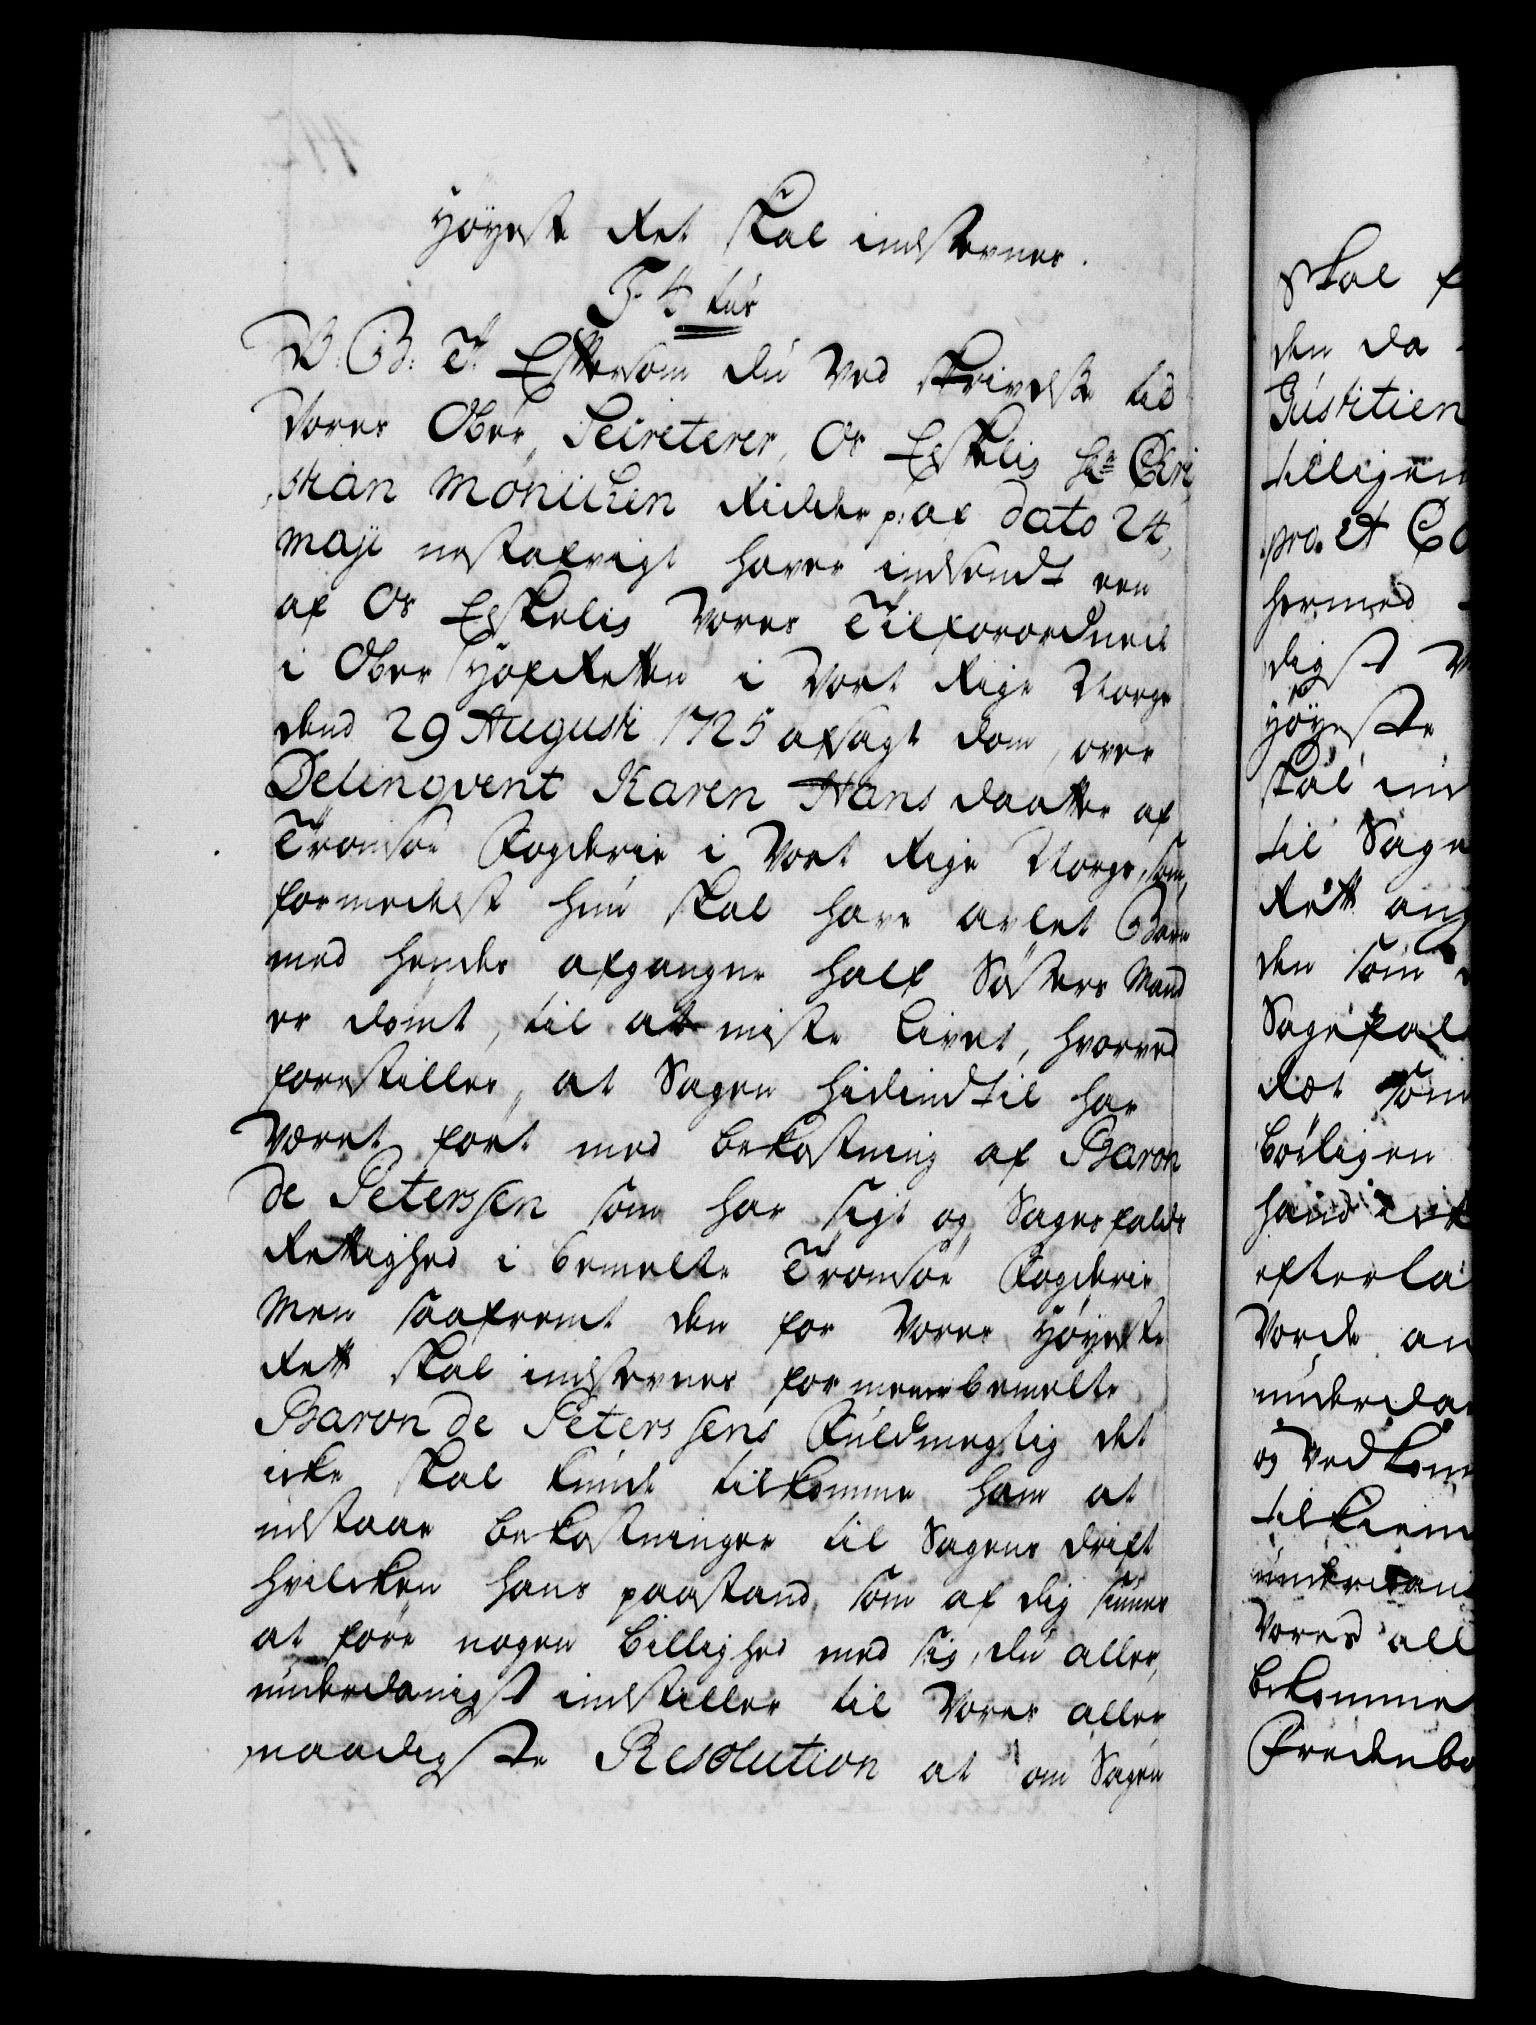 Høyeste Ret skal indstevnes.
F 4 tus
V. G. T. Eftersom du ved skrivelse til
Vores Ober Secreterer, Os Elskelig Hr Chri
stian Møinichen Ridder p: af dato 24
Maji nestafvigt haver indsendt een
af Os Elskelig Vores Tilforordnede
i Ober Hof Retten i Vort Rige Norge
dend 29 Augusti 1725 afsagt dom, over
Delinqvent Karen Hans daatter af
Tromsøe Fogderie i Vort Rige Norge, som,
formedelst hun skal have avlet Barn
med hendes afgangne half Søsters Mand
er dømt, til at miste livet, hvorved
forestilles, at Sagen hidindtil har
været ført med bekostning af Baron
de Peterssen som har sigt og Sagefalds
Rettighed i bemelte Tromsøe Fogderie
Men saafremt den for Vores Høyeste
Rett skal indstevnes formeener bemelte
Baron de Peterssens Fuldmegtig det
icke skal kunde tilkomme ham at
udstaae bekostninger til Sagens drift
hvilcken hans paastand, som af dig siunes
at føre nogen billighed med sig, du aller,
underdanigst indstiller til Vores aller
naadigste Resolution at om Sagen
skal f
den da
Justitien
tilligem
pro. et Co
hermed
digst V
Høyeste
skal ind
til Sage
Rett an
den som
Sagefal
Ret som
børligen
haand
efterla
Vorde an
underda
og Ved kom
tilkiem
underdani
Vores all
bekomme
Fredenbo